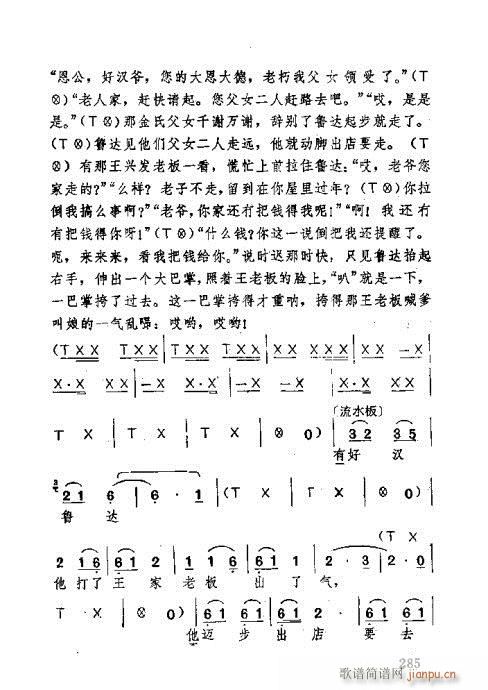 “恩公，好汉爷，您的大恩大德，老朽我父女领受了。”(T
⊗)“老人家，赶快请起。您父女二人赶路去吧。”“哎，是是
是。”(T⊗)那金氏父女千谢万谢，辞别了鲁达起步就走了。
(T⊗)鲁达见他们父女二人走远，他就动脚出店要走。(T
⊗)有那王兴发老板一看，慌忙上前拉住鲁达：“哎，老爷您
家走的？”“么样？老子不走，留到在你屋里过年？(T⊗)你拉
倒我搞么事啊？”“老爷，你家还冇把钱得我呢！”“啊！我还冇
有把钱得你呀！”(T⊗)“什么钱？你这一说倒把我还提醒了。
呃，来来来，看我把钱给你。”说时迟那时快，只见鲁达抬起
右手，伸出一个大巴掌，照着王老板的脸上，“叭”就是一下，
一巴掌挎了过去。这一巴掌挎得才重呐，挎得那王老板喊爹
叫娘的一气乱嗥：哎哟，哎哟！
(T X X T X X | T X X X X | X X X X | X X – X |
X·X X·X | – X – X | X·X X X | – X X X |
〔流水板〕
T X | T X | T X | ⊗ 0) | 3 2 3 5 |
有好 汉
2 1 6 | 6 · 1 | (T X | T X | ⊗ 0) |
鲁 达
(T X
2 1 6 | 1 6 1 | 6 1 2 | 2 · | 2 0 |
他打了 王 家 老 板 出 了 气，
T X | ⊗ 0) | 6 1 6 1 | 6 1 6 1 |
他迈 步 出 店 要 去
285
歌谱简谱网
jianpu.cn